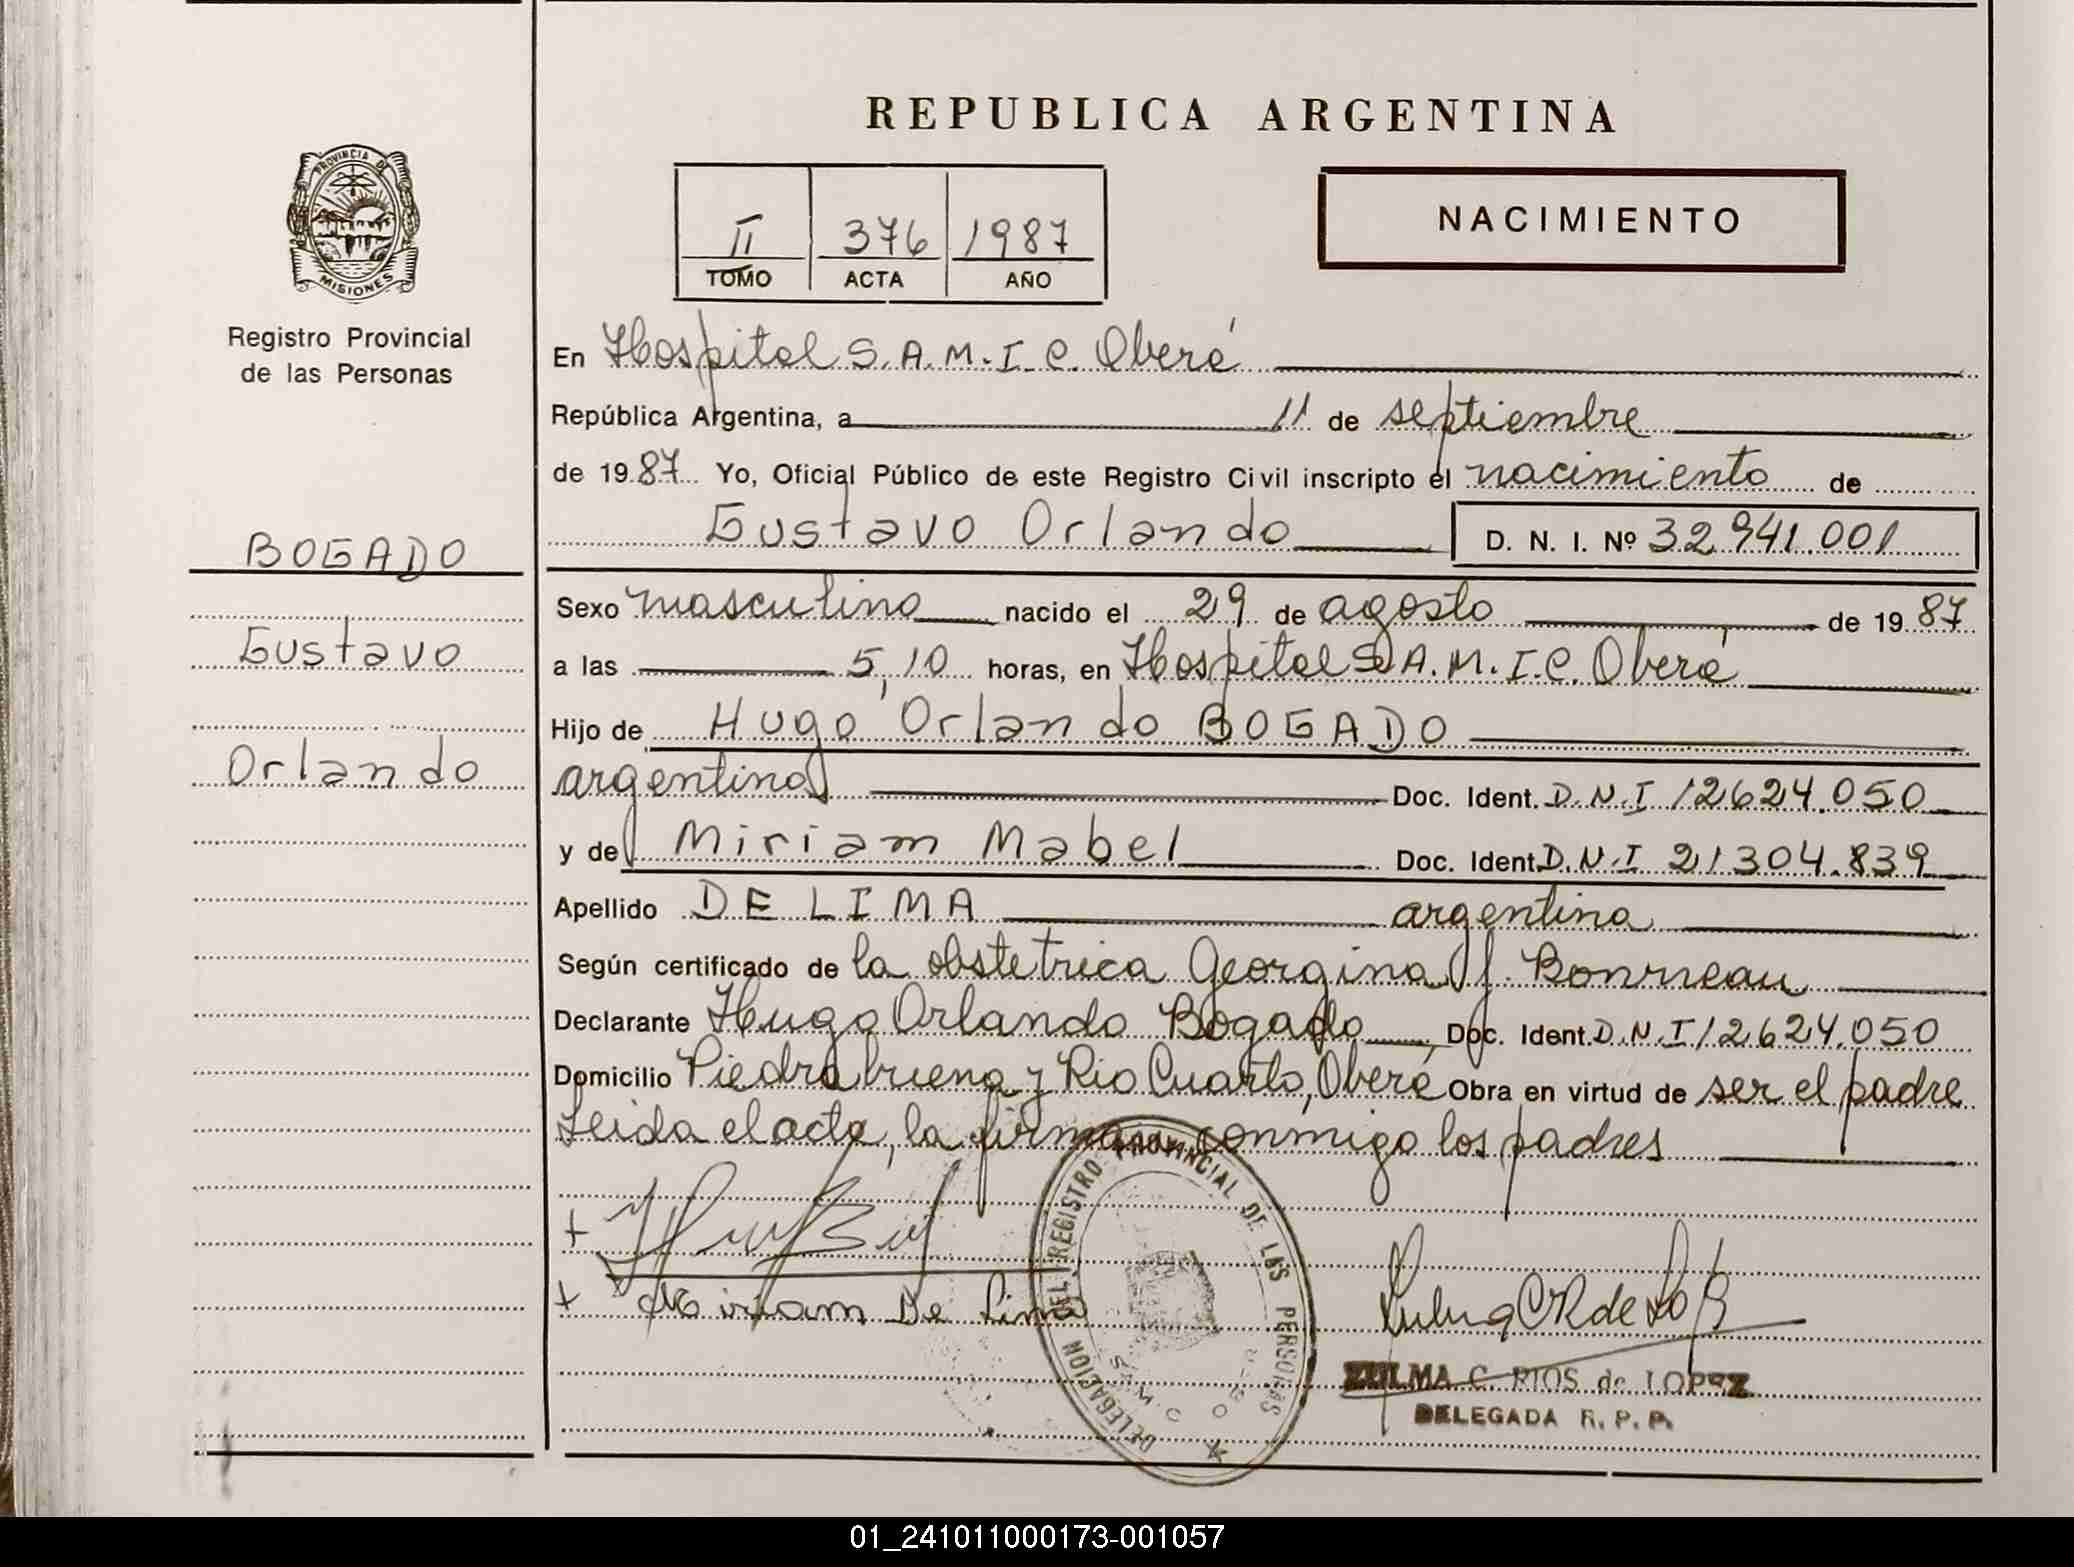 REPUBLICA ARGENTINA
PROVINCIA DE
MISIONES
Registro Provincial
de las Personas
II 376 1987
TOMO ACTA AÑO
NACIMIENTO
En Hospital S.A.M.I.C. Oberá
República Argentina, a 11 de septiembre
de 1987 Yo, Oficial Público de este Registro Civil inscripto el nacimiento de
Gustavo Orlando D. N. I. Nº 32.941.001
BOGADO
Gustavo
Orlando
Sexo masculino nacido el 29 de agosto de 1987
a las 5,10 horas, en Hospital S.A.M.I.C. Oberá
Hijo de Hugo Orlando BOGADO
argentino Doc. Ident. D.N.I 12624.050
y de Miriam Mabel Doc. Ident. D.N.I 21304.839
Apellido DE LIMA argentina
Según certificado de la obstetrica Georgina J. Bonneau
Declarante Hugo Orlando Bogado, Doc. Ident. D.N.I 12624.050
Domicilio Piedrabuena y Rio Cuarto, Oberá Obra en virtud de ser el padre
Leida el acta, la firman conmigo los padres
DELEGACION DEL REGISTRO PROVINCIAL DE LAS PERSONAS
+ Miriam De Lima
ZULMA C. RIOS de LOPEZ
DELEGADA R. P. P.
01_241011000173-001057